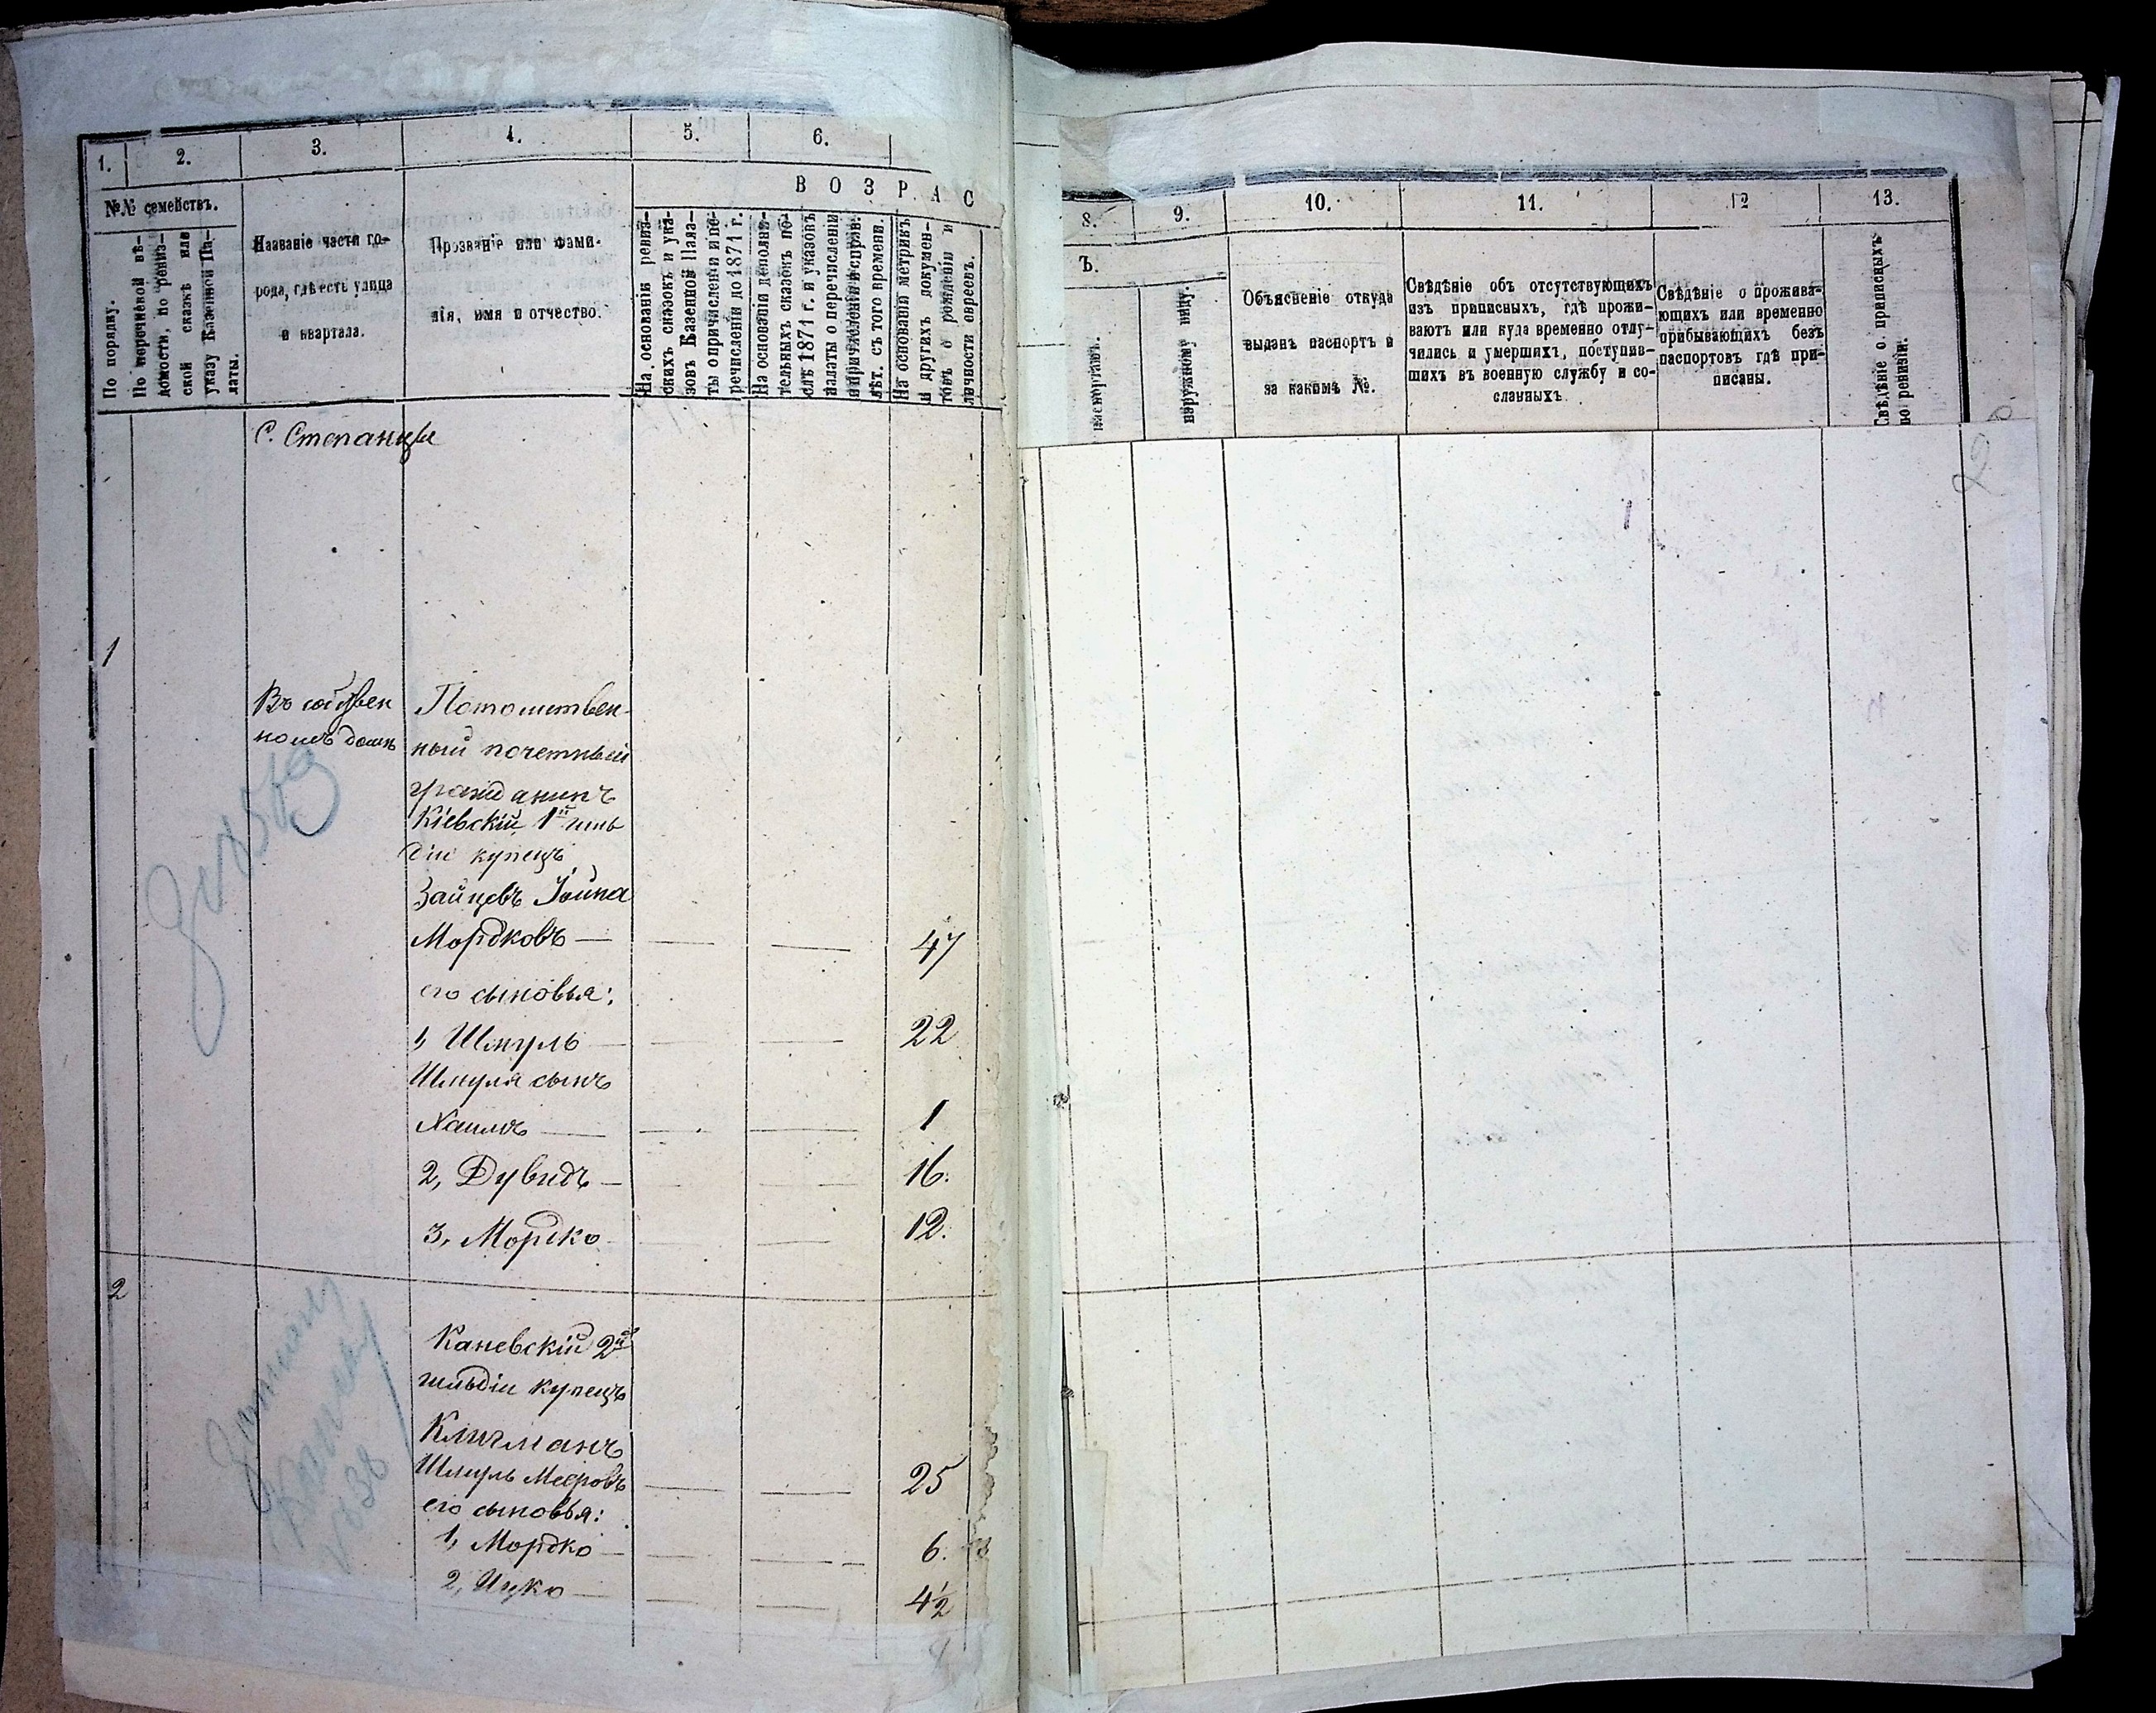 1.
2.
3.
4.
5.
6.
ВОЗРАС
№№ семействъ.
По порядку.
По перечневой вѣ-
домости, по ревиз-
ской сказкѣ или
указу Казенной Па-
латы.
Названіе части го-
рода, гдѣ есть улица
и квартала.
Прозваніе или фами-
лія, имя и отчество.
На основаніи ревиз-
скихъ сказокъ и ука-
зовъ Казенной Пала-
ты о причисленіи и пе-
речисленіи до 1871 г.
На основаніи дополни-
тельныхъ сказокъ по-
слѣ 1871 г. и указовъ
палаты о перечисленіи
и причисленіи и справ.
лѣт. съ того времени.
На основаніи метрикъ
и другихъ докумен-
товъ о рожденіи и
личности евреевъ.
С. Степанцы
1
Въ собствен
номъ домѣ
Потомствен-
ный почетный
гражданинъ
Кіевскій 1й гиль
діи купецъ
Зайцевъ Іойна
Мордковъ — 47
его сыновья:
1, Шмуль — 22
Шмуля сынъ
Хаимъ — 1
2, Дувидъ — 16.
3, Мордко 12.
2
Каневскій 2й
гильдіи купецъ
Клигманъ
Шмуль Мееровъ 25
его сыновья:
1, Мордко — 6.
2, Ицко — 4½
8.
9.
10.
11.
12
13.
Ъ.
паспортамъ.
наружному виду.
Объясненіе откуда
выданъ паспортъ и
за какимъ №.
Свѣдѣніе объ отсутствующихъ
изъ приписныхъ, гдѣ прожи-
ваютъ или куда временно отлу-
чились и умершихъ, поступив-
шихъ въ военную службу и со-
сланныхъ.
Свѣдѣніе о прожива-
ющихъ или временно
прибывающихъ безъ
паспортовъ гдѣ при-
писаны.
Свѣдѣніе о приписныхъ
по ревизіи.
2